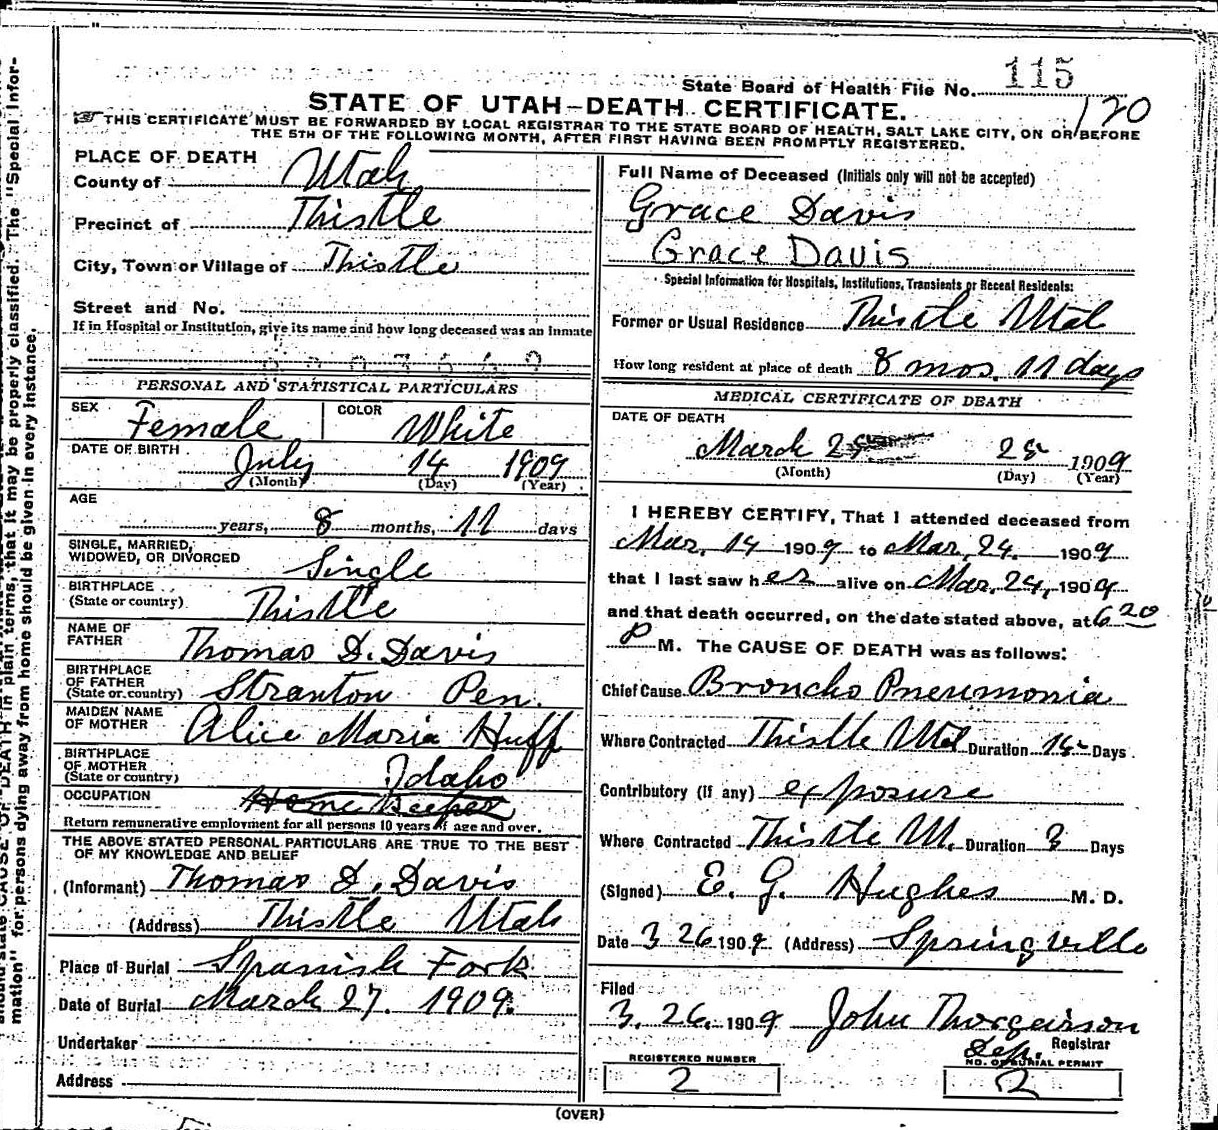 State Board of Health File No. 115
120
STATE OF UTAH-DEATH CERTIFICATE.
THIS CERTIFICATE MUST BE FORWARDED BY LOCAL REGISTRAR TO THE STATE BOARD OF HEALTH, SALT LAKE CITY, ON OR BEFORE
THE 5TH OF THE FOLLOWING MONTH, AFTER FIRST HAVING BEEN PROMPTLY REGISTERED.
PLACE OF DEATH
County of Utah
Precinct of Thistle
City, Town or Village of Thistle
Street and No.
If in Hospital or Institution, give its name and how long deceased was an Inmate
PERSONAL AND STATISTICAL PARTICULARS
SEX Female COLOR White
DATE OF BIRTH July 14 1909
(Month) (Day) (Year)
AGE
years, 8 months, 11 days
SINGLE, MARRIED,
WIDOWED, OR DIVORCED Single
BIRTHPLACE
(State or country) Thistle
NAME OF
FATHER Thomas D. Davis
BIRTHPLACE
OF FATHER
(State or country) Stranton Pen.
MAIDEN NAME
OF MOTHER Alice Maria Huff
BIRTHPLACE
OF MOTHER
(State or country) Idaho
OCCUPATION Home Keeper
Return remunerative employment for all persons 10 years of age and over.
THE ABOVE STATED PERSONAL PARTICULARS ARE TRUE TO THE BEST
OF MY KNOWLEDGE AND BELIEF
(Informant) Thomas D. Davis
(Address) Thistle Utah
Place of Burial Spanish Fork
Date of Burial March 27. 1909.
Undertaker
Address
Full Name of Deceased (Initials only will not be accepted)
Grace Davis
Grace Davis
Special Information for Hospitals, Institutions, Transients or Recent Residents:
Former or Usual Residence Thistle Utah
How long resident at place of death 8 mos. 11 days
MEDICAL CERTIFICATE OF DEATH
DATE OF DEATH
March 25 25 1909
(Month) (Day) (Year)
I HEREBY CERTIFY, That I attended deceased from
Mar. 14 1909 to Mar. 24. 1909
that I last saw her alive on Mar. 24, 1909
and that death occurred, on the date stated above, at 6 20
P M. The CAUSE OF DEATH was as follows:
Chief Cause Broncho Pneumonia
Where Contracted Thistle Utah Duration 15 Days
Contributory (if any) exposure
Where Contracted Thistle U. Duration 3 Days
(Signed) E. G. Hughes M. D.
Date 3 26 1909 (Address) Springville
Filed
3. 26. 1909 John Thorgeirson
Dep. Registrar
REGISTERED NUMBER
2
NO. OF BURIAL PERMIT
2
(OVER)
mation" for persons dying away from home should be given in every instance.